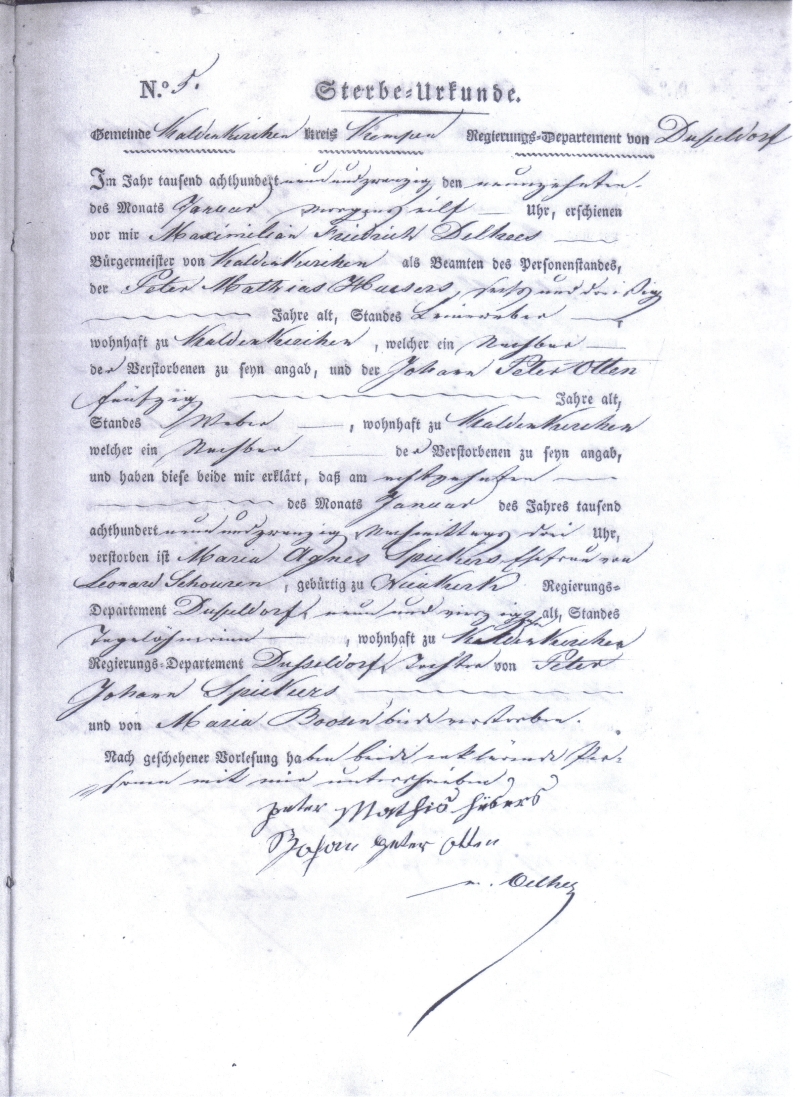 N.º 5.
Sterbe-Urkunde.
Gemeinde Kaldenkirchen Kreis Kempen Regierungs-Departement von Dusseldorf
Im Jahr tausend achthundert neun und zwanzig den neunzehnten
des Monats Januar Morgens eilf Uhr, erschienen
vor mir Maximilian Friedrich
Bürgermeister von Kaldenkirchen als Beamten des Personenstandes,
der Peter Mathias sechs und dreißig
Jahre alt, Standes Leineweber,
wohnhaft zu Kaldenkirchen, welcher ein Nachbar
der Verstorbenen zu seyn angab, und der Johann Peter Otten
fünfzig Jahre alt,
Standes Weber, wohnhaft zu Kaldenkirchen
welcher ein Nachbar der Verstorbenen zu seyn angab,
und haben diese beide mir erklärt, daß am achtzehnten
des Monats Januar des Jahres tausend
achthundert neun und zwanzig Nachmittags drei Uhr,
verstorben ist Maria Agnes Spickers Ehefrau von
Leonard Schouren, gebürtig zu Nieukerk Regierungs-
Departement Dusseldorf, neun und vierzig alt, Standes
Tagelöhnerinn, wohnhaft zu Kaldenkirchen
Regierungs-Departement Dusseldorf, Tochter von Peter
Johann Spickers
und von Maria Boosen, beide verstorben.
Nach geschehener Vorlesung haben beide erklärende Per-
sonen mit mir unterschrieben
peter Mathis hübers
Johan peter otten